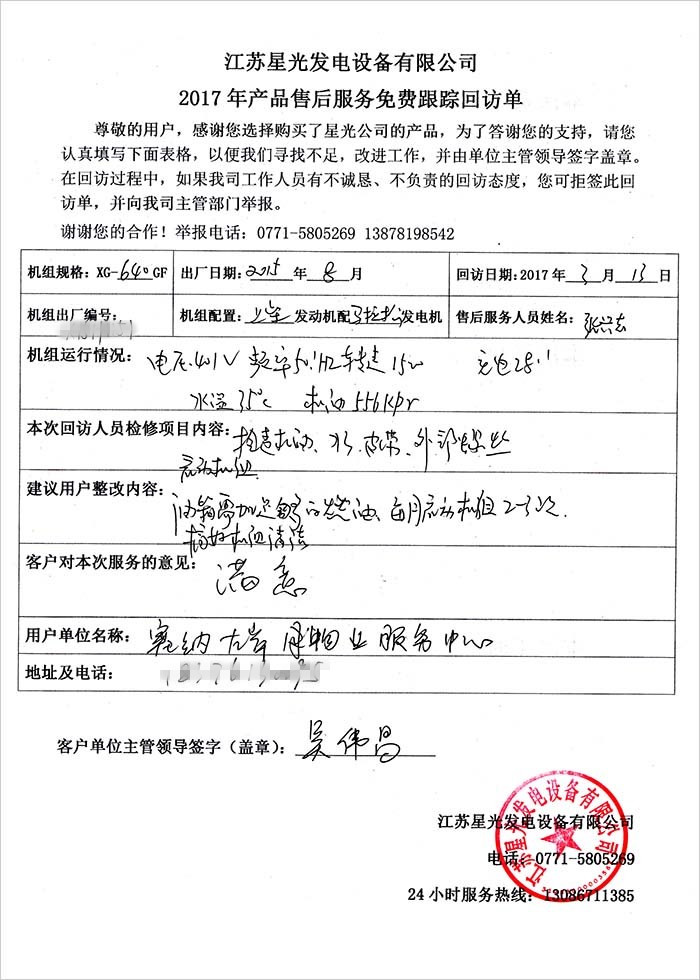 江苏星光发电设备有限公司
2017年产品售后服务免费跟踪回访单
尊敬的用户，感谢您选择购买了星光公司的产品，为了答谢您的支持，请您
认真填写下面表格，以便我们寻找不足，改进工作，并由单位主管领导签字盖章。
在回访过程中，如果我司工作人员有不诚恳、不负责的回访态度，您可拒签此回
访单，并向我司主管部门举报。
谢谢您的合作！举报电话：0771-5805269 13878198542
机组规格：XG-640GF 出厂日期：2015 年 8 月 回访日期：2017 年 3 月 13 日
机组出厂编号： 机组配置： 发动机配 发电机 售后服务人员姓名：
机组运行情况： 电压401V 频率50HZ 转速1500 充电28.1
水温35℃ 机油556kpa
本次回访人员检修项目内容：检查机油、水、皮带、外部螺丝
启动机组
建议用户整改内容：油箱需加足够的燃油、每月启动机组2-3次.
搞好机组清洁
客户对本次服务的意见：满意
用户单位名称：塞纳左岸 物业服务中心
地址及电话：
客户单位主管领导签字（盖章）：吴伟昌
江苏星光发电设备有限公司
江苏星光发电设备有限公司
电话：0771-5805269
24小时服务热线：13086711385